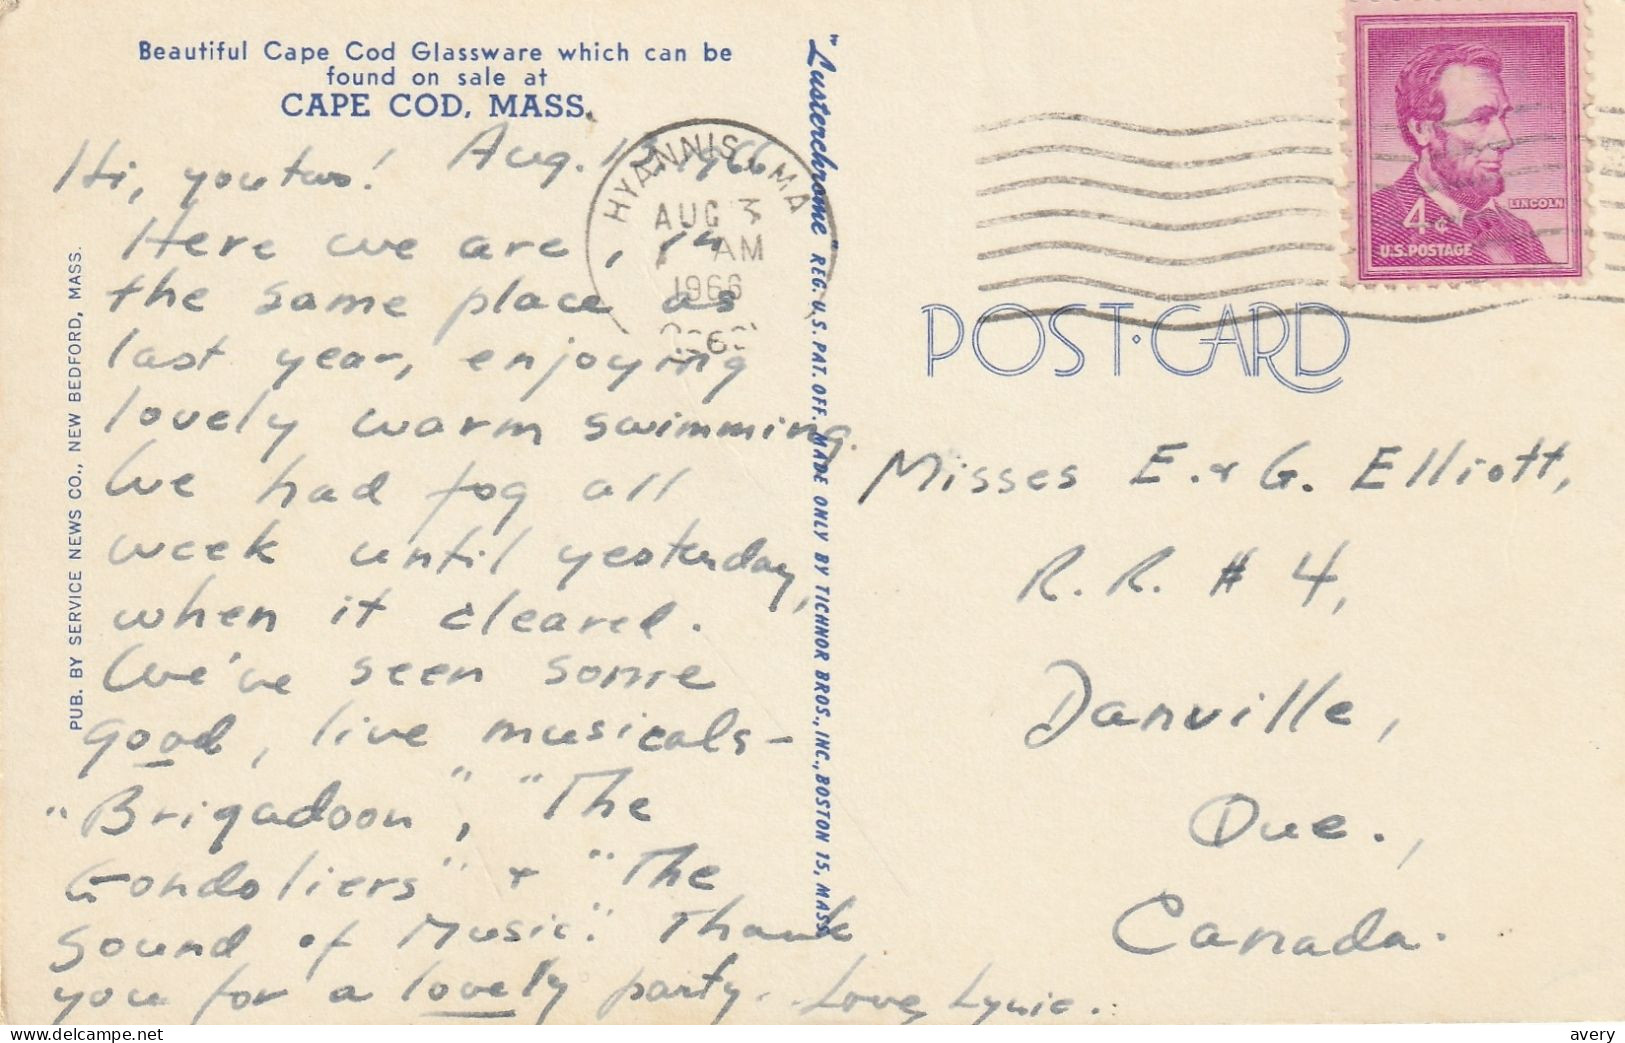 Beautiful Cape Cod Glassware which can be
found on sale at
CAPE COD, MASS.
Aug. 1966
Hi, you two!
Here we are, in
the same place as
last year, enjoying
lovely warm swimming.
We had fog all
week until yesterday,
when it cleared.
We've seen some
good, live musicals -
"Brigadoon", "The
Gondoliers" + "The
Sound of Music". Thank
you for a lovely party. Love, Lynie.
PUB. BY SERVICE NEWS CO., NEW BEDFORD, MASS.
"Lusterchrome" REG. U.S. PAT. OFF. MADE ONLY BY TICHNOR BROS., INC., BOSTON 15, MASS.
HYANNIS, MA
AUG 3
AM
1966
4¢
LINCOLN
U.S. POSTAGE
POST·CARD
Misses E. + G. Elliott,
R. R. # 4,
Danville,
Que.,
Canada.
avery